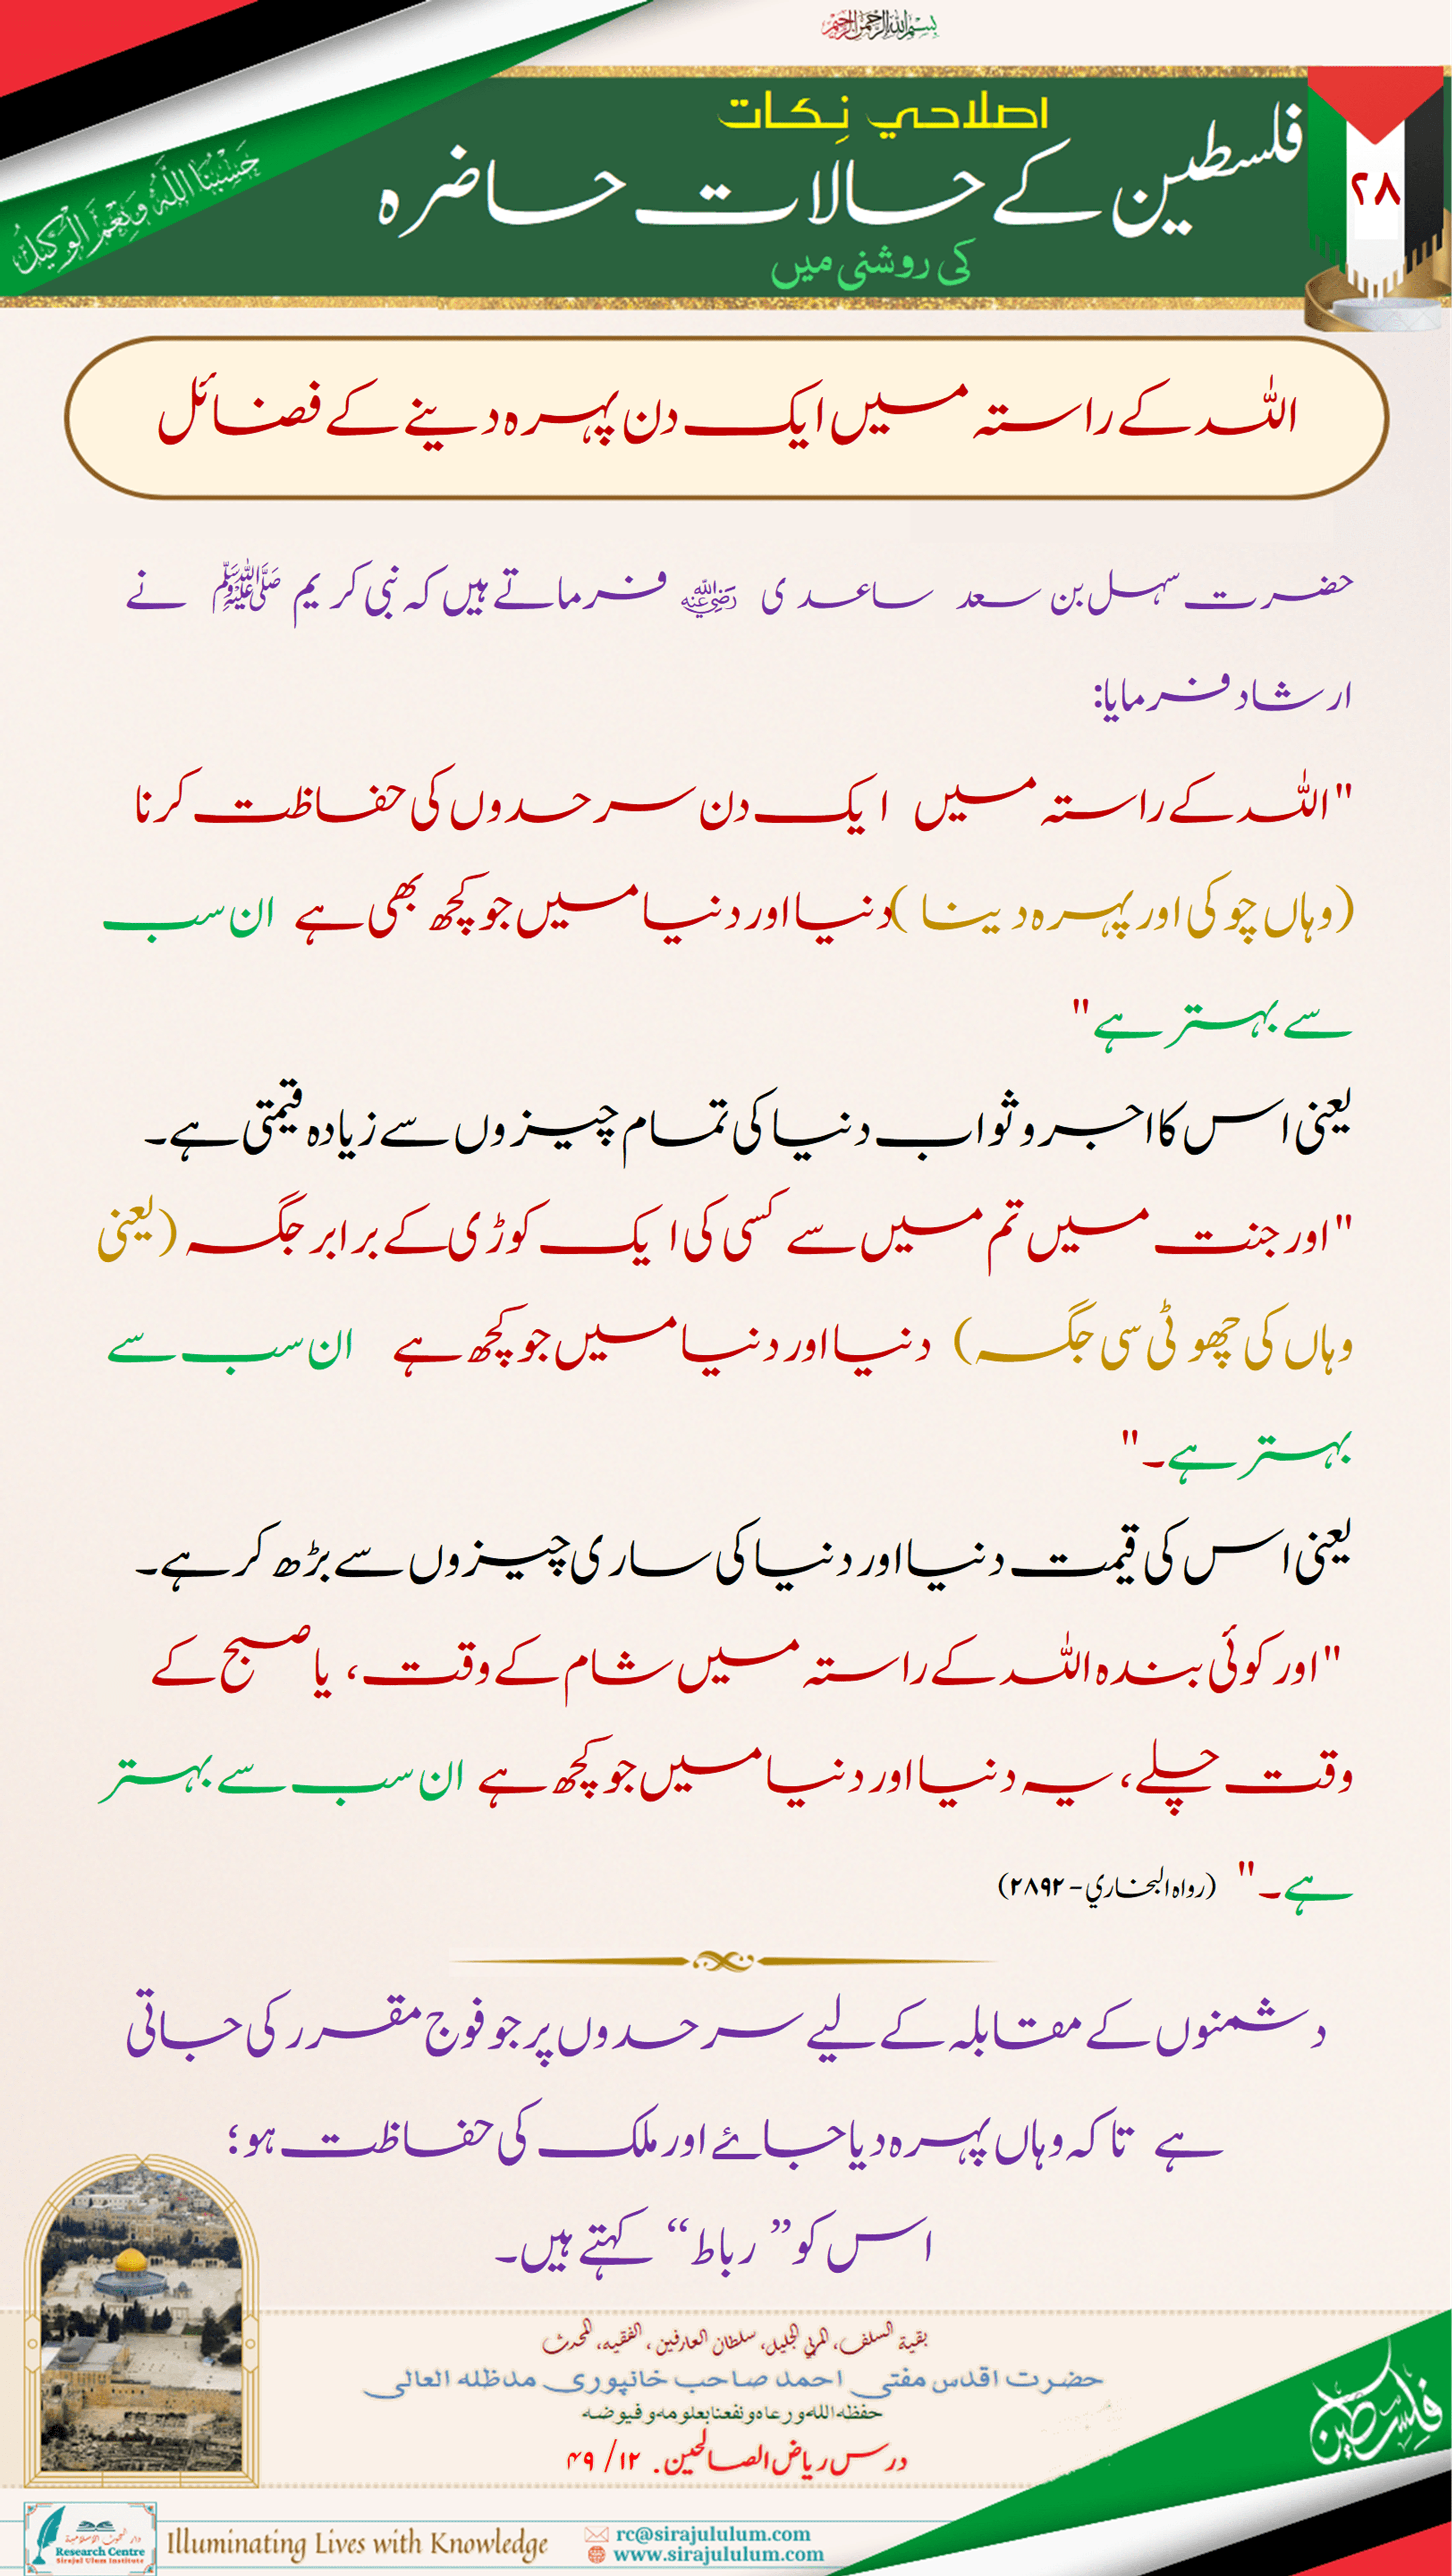 بسم الله الرحمن الرحيم
حَسْبُنَا اللَّهُ وَنِعْمَ الْوَكِيْلُ
۲۸
اصلاحي نِكات
فلسطین کے حالات حاضرہ
کی روشنی میں
اللہ کے راستہ میں ایک دن پہرہ دینے کے فضائل
حضرت سہل بن سعد ساعدی رضي الله عنه فرماتے ہیں کہ نبی کریم ﷺ نے
ارشاد فرمایا:
"اللہ کے راستہ میں ایک دن سرحدوں کی حفاظت کرنا
(وہاں چوکی اور پہرہ دینا) دنیا اور دنیا میں جو کچھ بھی ہے ان سب
سے بہتر ہے"
یعنی اس کا اجر و ثواب دنیا کی تمام چیزوں سے زیادہ قیمتی ہے۔
"اور جنت میں تم میں سے کسی کی ایک کوڑی کے برابر جگہ (یعنی
وہاں کی چھوٹی سی جگہ) دنیا اور دنیا میں جو کچھ ہے ان سب سے
بہتر ہے۔"
یعنی اس کی قیمت دنیا اور دنیا کی ساری چیزوں سے بڑھ کر ہے۔
"اور کوئی بندہ اللہ کے راستہ میں شام کے وقت، یا صبح کے
وقت چلے، یہ دنیا اور دنیا میں جو کچھ ہے ان سب سے بہتر
ہے۔" (رواه البخاري - ۲۸۹۲)
دشمنوں کے مقابلہ کے لیے سرحدوں پر جو فوج مقرر کی جاتی
ہے تاکہ وہاں پہرہ دیا جائے اور ملک کی حفاظت ہو؛
اس کو ”رباط“ کہتے ہیں۔
بقية السلف، المربي الجليل، سلطان العارفين، الفقيه، المحدث
حضرت اقدس مفتی احمد صاحب خانپوری مدظلہ العالی
حفظه الله ورعاه ونفعنا بعلومه وفيوضه
درس ریاض الصالحین. ۱۲/ ۴۹
فلسطين
Research Centre
Sirajul Ulum Institute
Illuminating Lives with Knowledge
rc@sirajululum.com
www.sirajululum.com